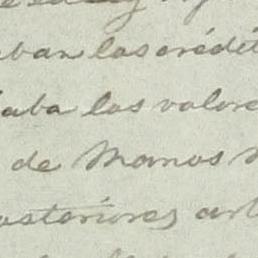 ban los crédit
aba los valore
de Manos
osteriores art